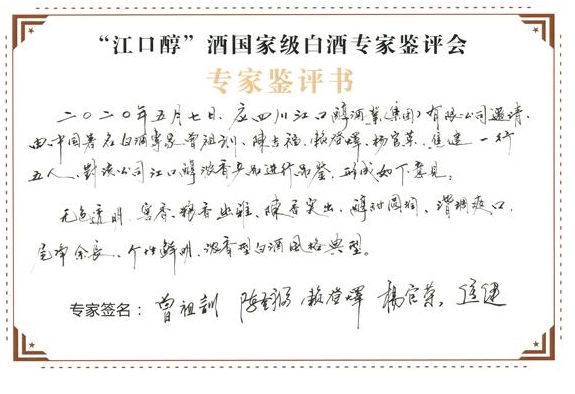 “江口醇”酒国家级白酒专家鉴评会
专家鉴评书
二〇二〇年五月七日，应四川江口醇酒业(集团)有限公司邀请，
由中国著名白酒专家曾祖训、陳吉福、赖登燡、杨官荣、伍建一行
五人，對该公司江口醇浓香产品进行品鉴，形成如下意見：
无色透明、窖香、粮香幽雅、陳香突出、醇甜圆润、谐调爽口、
尾净余長、个性鮮明、浓香型白酒風格典型。
专家签名：曾祖訓 赖登燡 楊官荣